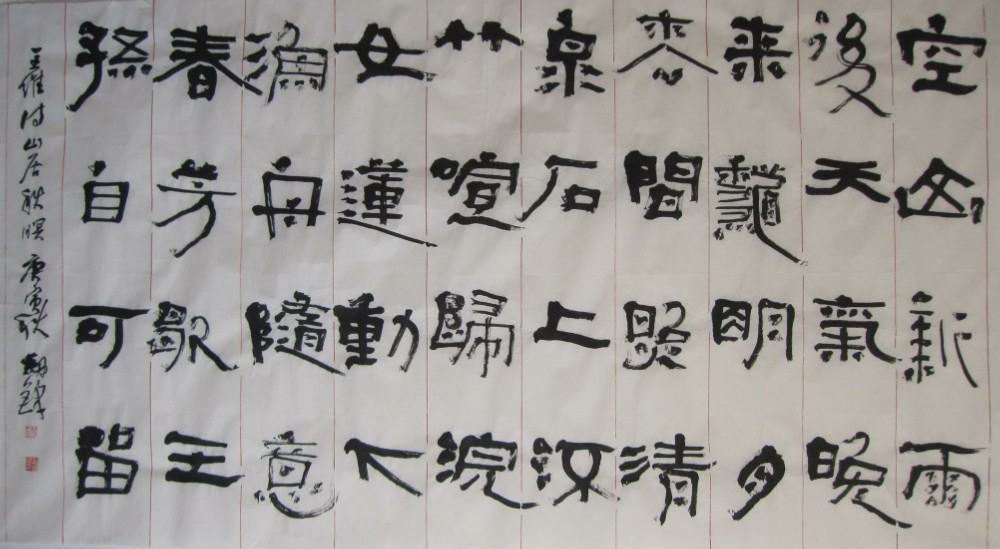 空山新雨
後天氣晚
来龝明月
枩間照清
泉石上流
竹喧歸浣
女蓮動下
漁舟隨意
春芳歇王
孫自可留
王維诗山居秋暝 庚寅秋